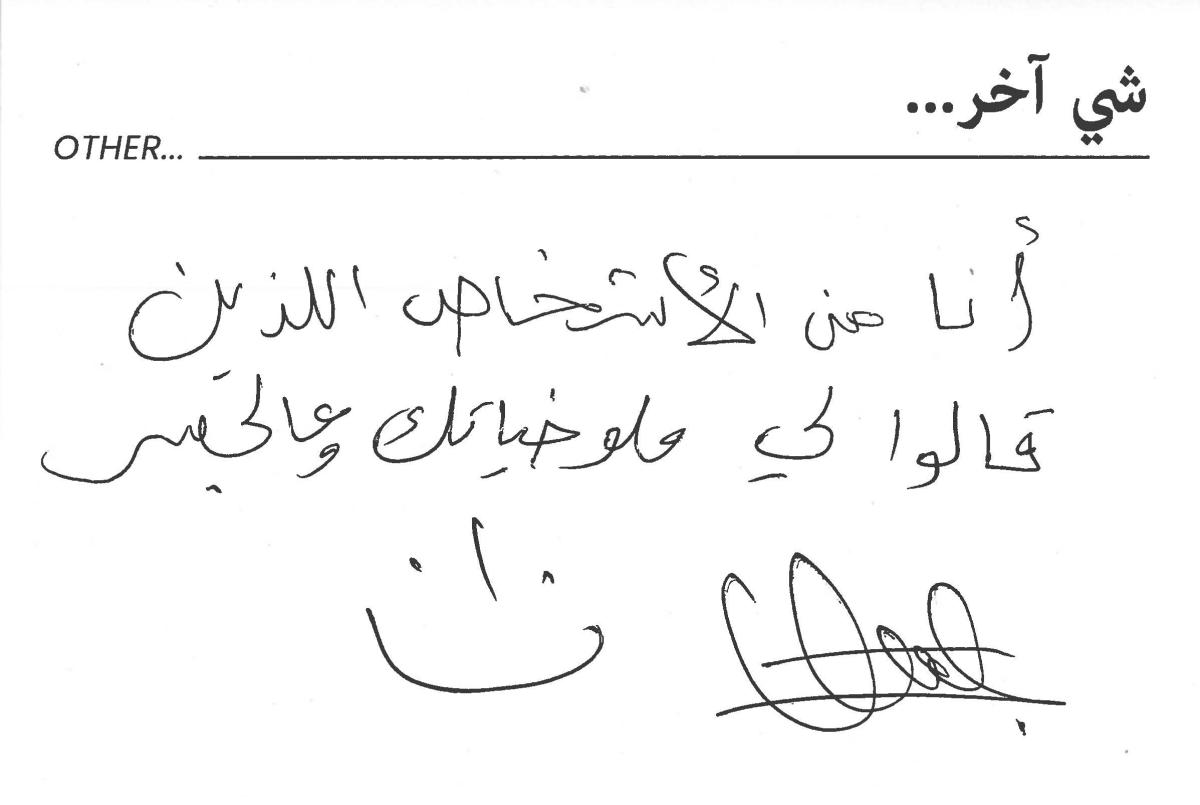 شي آخر...
OTHER...
أنا من الأشخاص اللذين
قالوا لي ملوخياتك وعالخميس